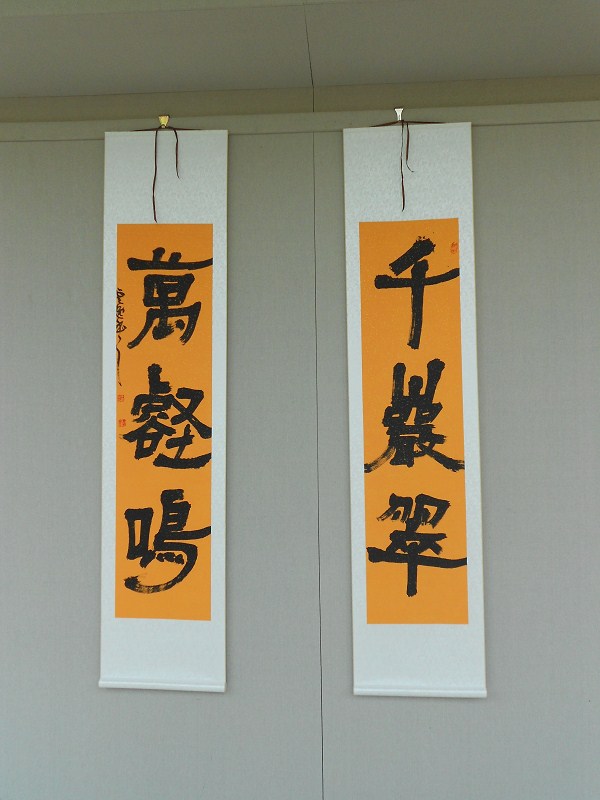 千巖翠
萬壑鳴